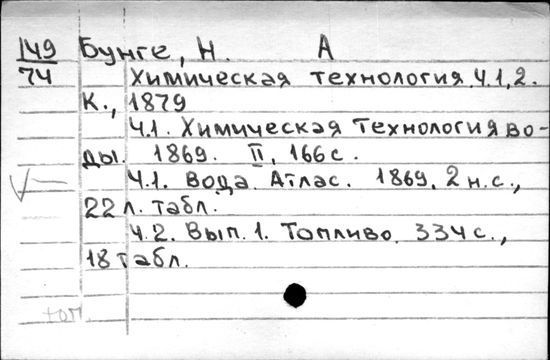 149 Бунге, Н. А
74 Химическая технология. Ч.1,2.
К., 1879
Ч.1. Химическая технология во-
ды. 1869. II, 166 с.
Ч.1. Вода. Атлас. 1869. 2 н.с.,
22 л. табл.
Ч.2. Вып. 1. Топливо. 334 с.,
18 табл.